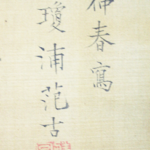 仲春寫
瓊浦范古